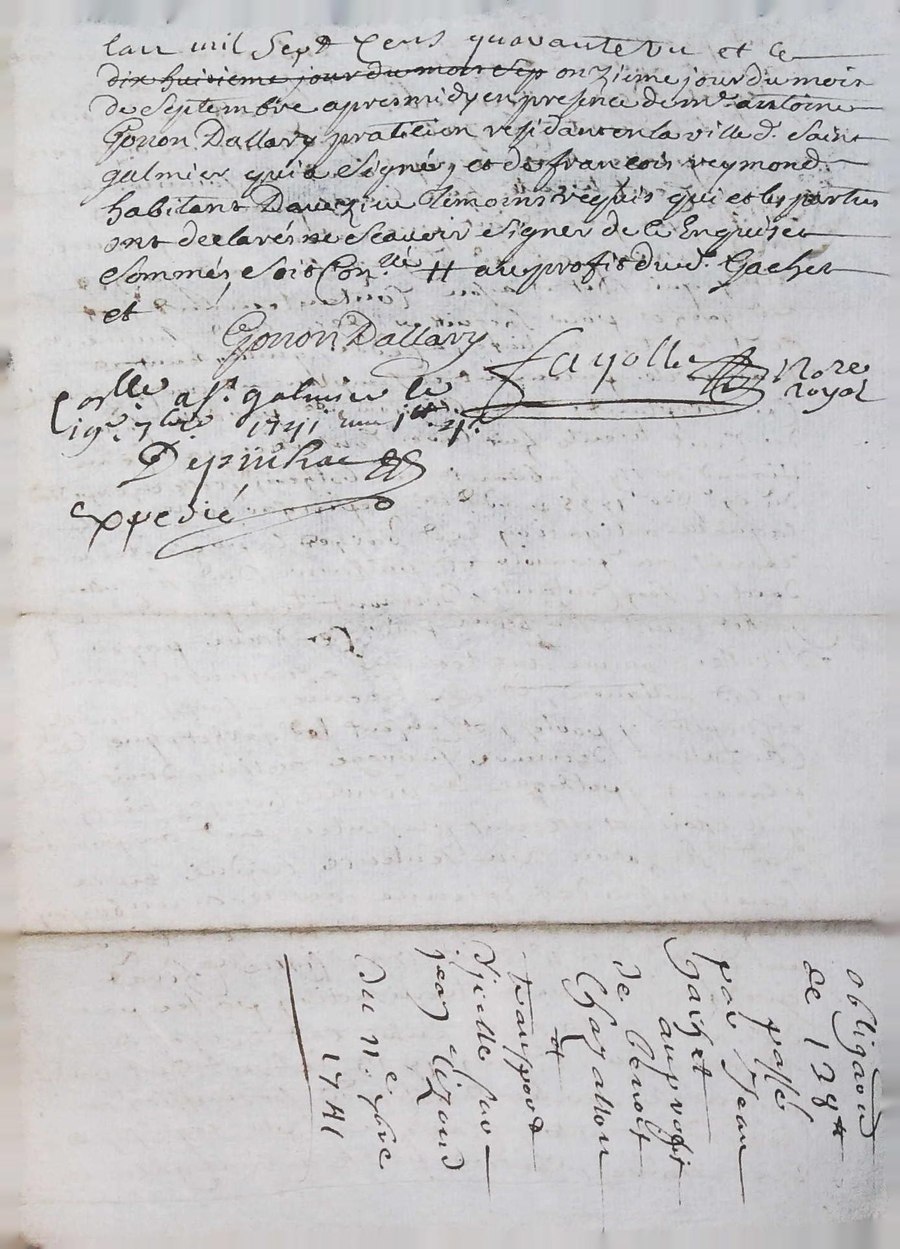 lan mil Sept Cens quarante vn et le
dix huitieme jour du mois Sep onzieme jour du mois
de Septembre apres midy en presence de me antoine
Gonon Dallary praticien residant en la ville de Saint
galmier qui a signé, et de francois reymond
habitant temoins requis qui et les parties
ont declarés ne scavoir signer de ce Enquis et
sommés, Soit Con.lé # au profit dud. Gachet
et
Gonon Dallary
fayolle
No.re
royal
Con.lle a st. galmier le
19e. 7bre 1741
expedié
obliga.on
de 138 tt
passé
par Jean
Gachet
au profit
de benoit
Chazallon
et
transport
dicelle par
jean
Du 11e 7bre
1741